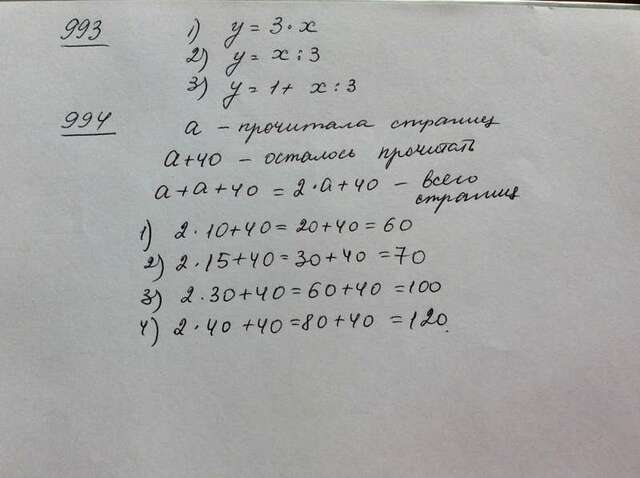 993 1) y = 3 · x
2) y = x : 3
3) y = 1 + x : 3
994 a – прочитала страниц
a + 40 – осталось прочитать
a + a + 40 = 2 · a + 40 – всего
страниц
1) 2 · 10 + 40 = 20 + 40 = 60
2) 2 · 15 + 40 = 30 + 40 = 70
3) 2 · 30 + 40 = 60 + 40 = 100
4) 2 · 40 + 40 = 80 + 40 = 120.